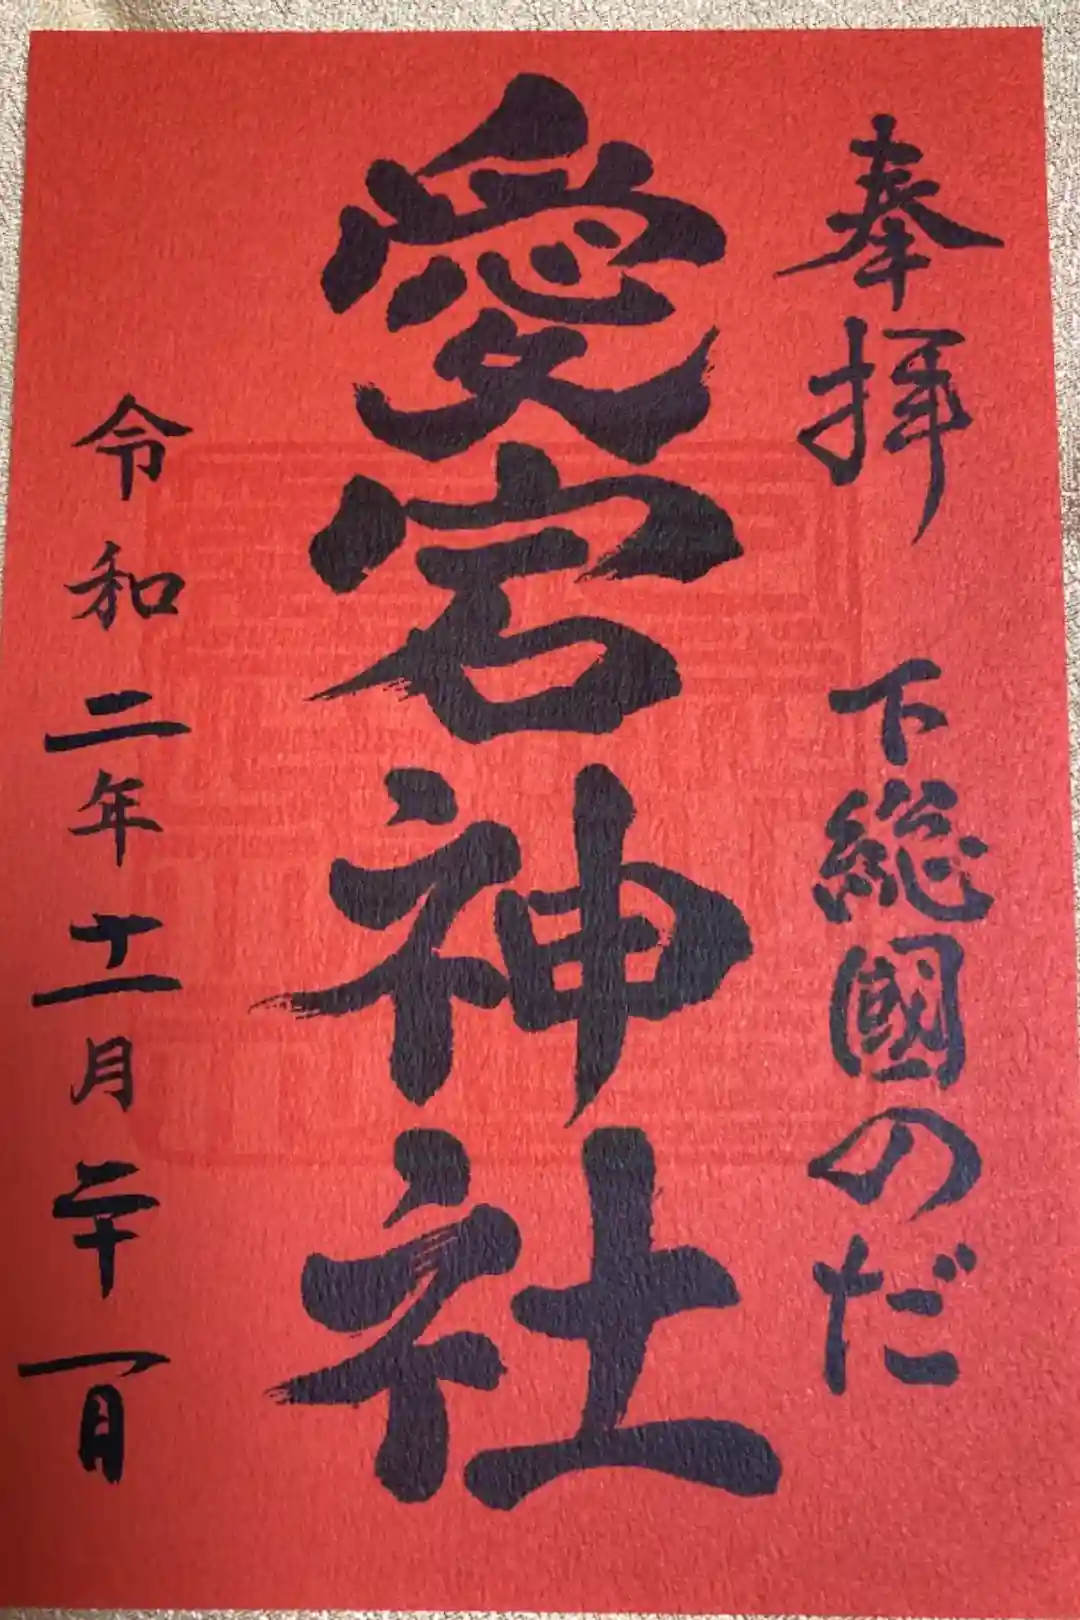 奉拝　下総國のだ
愛宕神社
令和二年十一月二十一日